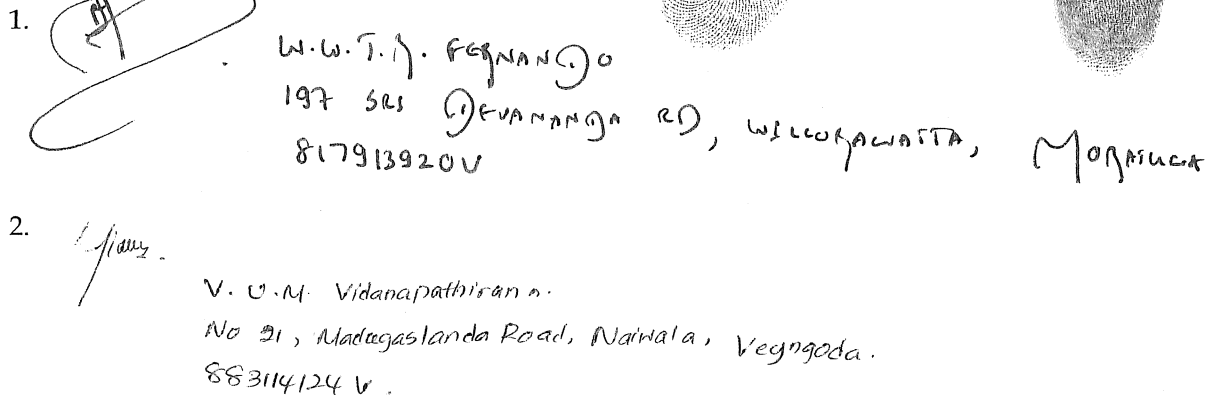 1.
W.W.T.R. FERNANDO
197 SRI DEVANANDA RD, WILLORAWATTA, MORATUWA
817913920V
2.
V.U.M. Vidanapathirana.
No 21, Madugaslanda Road, Naiwala, Veyngoda.
883114124 V.